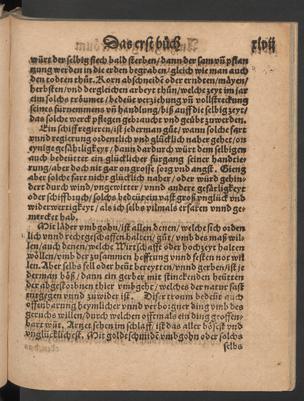 Das erst büch xlvii
würt der selbig siech bald sterben / dann der som vñ pflan
tzung werden in die erden begraben / gleich wie man auch
den todten thůt. Korn abschneidē oder ernden / mäyen /
herbsten / vnd dergleichen arbeyt thůn / welche zeyt im jar
ein solchs tröumet / bedeüt verziehung vñ vollstreckung
seines fürnemmens vñ handlung / biß auff die selbig zeyt /
das solche werck pflegen gebraucht vnd geübt zuwerden.
Ein schiff regieren / ist jederman gůt / wann solche fart
vnnd regierung ordenlich vnd glücklich naher gehet / on
eynige gefäligkeyt / dann dardurch würt dem selbigen
auch bedeüttet ein glücklicher fürgang seiner handtie
rung / aber doch mit gar on grosse sorg vnd angst. Gieng
aber solche fart nicht glücklich naher / oder würd gehin
dert durch wind / vngewitter / vnnd andere gefärligkeyt
oder schiffbruch / solchs bedeüt ein vast groß vnglück vnd
widerwertigkeyt / als ich selbs vilmals erfaren vnnd ge-
mercket hab.
Mit läder vmbgohn / ist allen denen / welche sich orden
lich vnnd rechtgeschaffen halten / gůt / vmb des maß wil-
len / auch denen / welche Wirtschafft oder hochzeyt halten
wöllen / vmb der zusammen hefftung vnnd festen not wil
len. Aber selbs fell oder heüt bereytten / vnnd gerben / ist je
derman böß / dann ein gerber mit stinckenden heütten
der abgestorbnen thier vmbgeht / welches der natur fast
entgegen vnnd zuwider ist. Diser traum bedeüt auch
offenbarung heymlicher vnnd verborgner ding vmb des
geruchs willen / durch welchen offtmals ein ding geoffen-
bart würt. Artzet sehen im schlaff / ist das aller bösest vnd
vnglücklichest. Mit goldtschmidt vmbgohn oder solchs
selbs